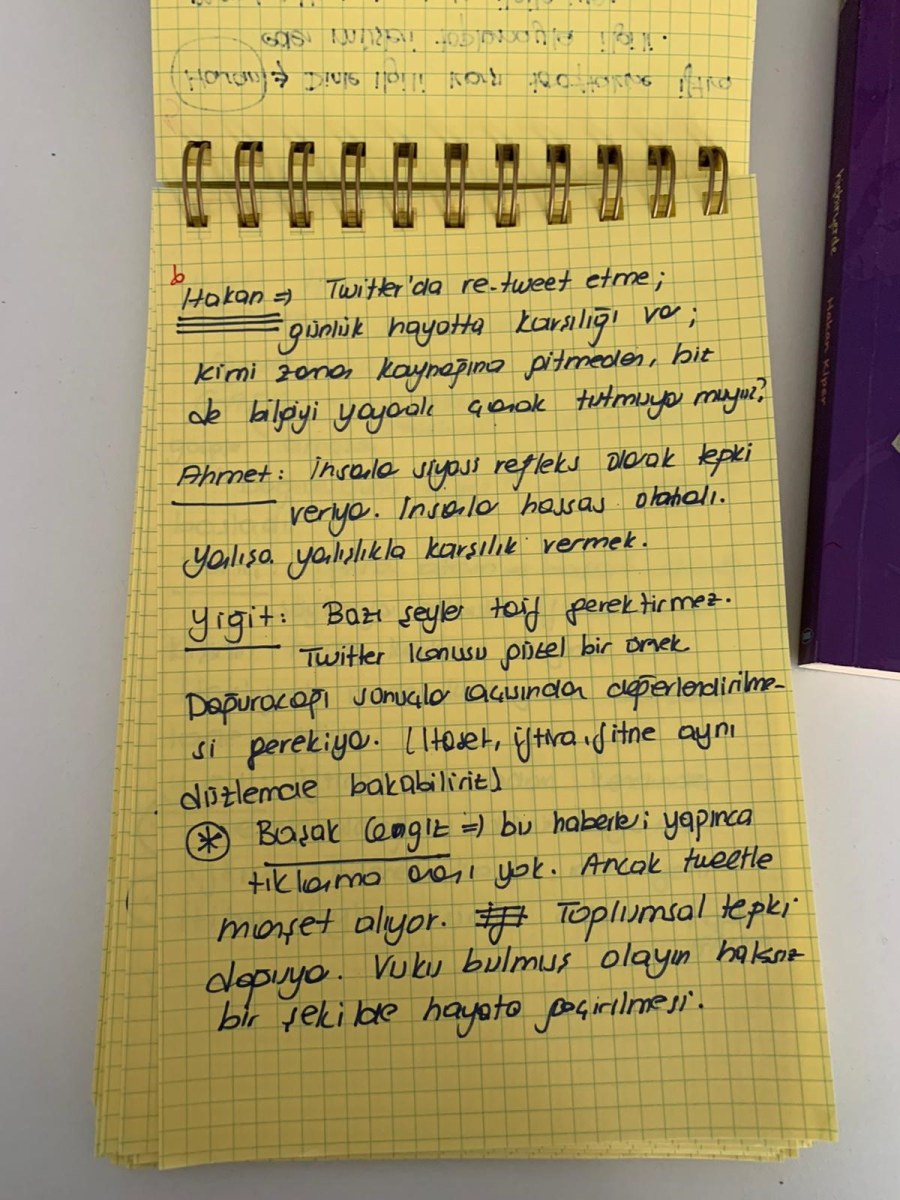 eden mitleri
Harani => Dinle ilgili karşı iftira
Hakan => Twitter'da re-tweet etme;
günlük hayatta karsılığı var;
kimi zaman kaynağına gitmeden, biz
de bilgiyi yayarak çanak tutmuyor muyuz?
Ahmet: İnsanlar siyasi refleks olarak tepki
veriyor. İnsanlar hassas olmalı.
Yanlışa yanlışlıkla karsılık vermek.
Yiğit: Bazı şeyler tarif gerektirmez.
Twitter konusu güzel bir örnek
Doğuracağı sonuçlar açısından değerlendirilme-
si gerekiyor. (Haset, iftira, fitne aynı
düzlemde bakabiliriz)
* Başak Cengiz => bu haberleri yapınca
tıklanma oranı yok. Ancak tweetle
manşet alıyor. Toplumsal tepki
doğuyor. Vuku bulmuş olayın haksız
bir şekilde hayata geçirilmesi.
Hakan Kiper